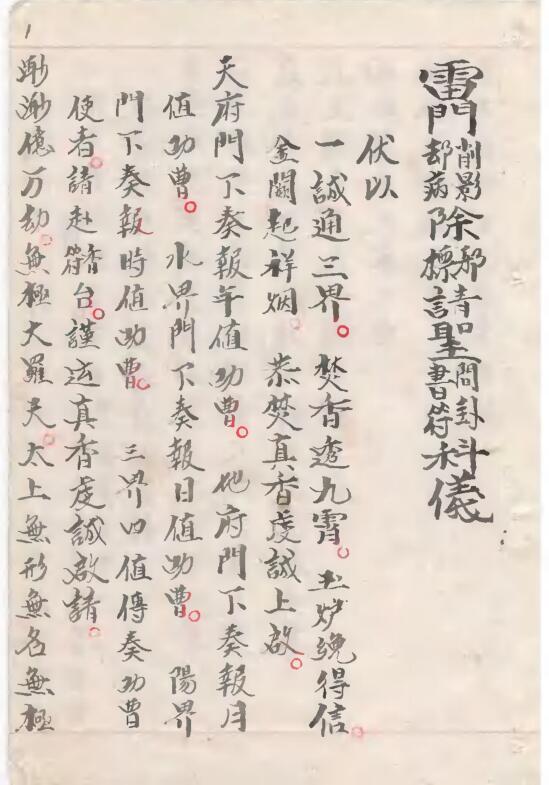 1
雷門削影却病除邪標請聖問卦書符科儀
伏以
一誠通三界。焚香透九霄。玉炉得信。
金闕起祥烟。恭焚真香虔誠上啟。
天府門下奏報年值功曹。地府門下奏報月
值功曹。水界門下奏報日值功曹。陽界
門下奏報時值功曹。三界四值傳奏功曹
使者。請赴香符台。謹运真香虔誠啟請。
渺渺億万劫。無極大羅天。太上無形無名無極